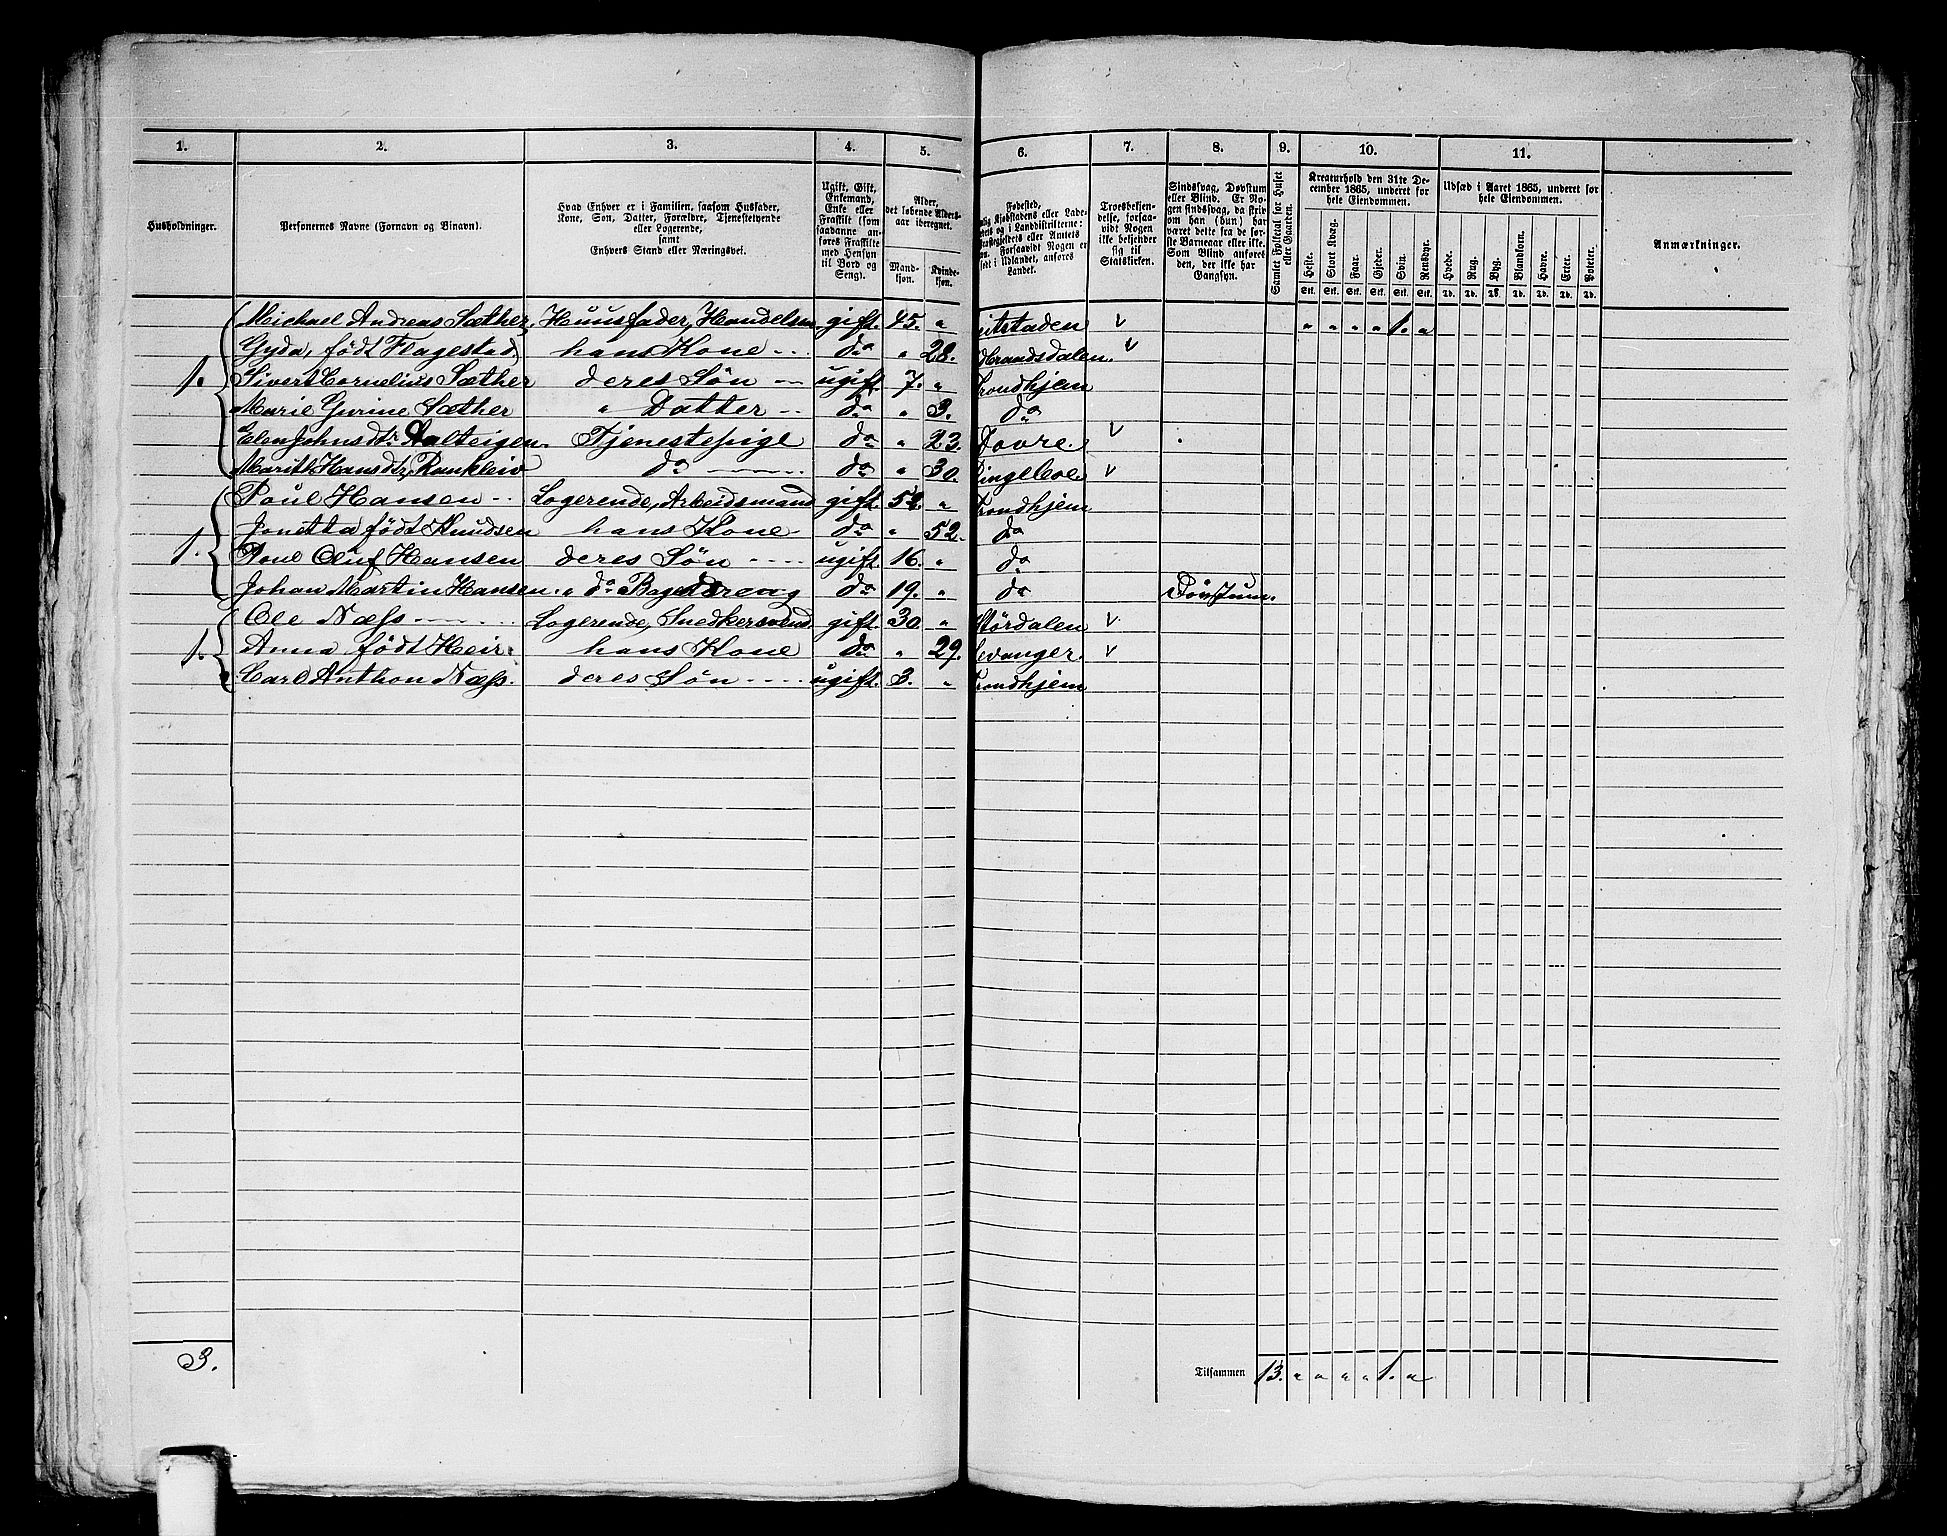 1. 2. 3. 4. 5. 6. 7. 8. 9. 10. 11.
Husholdninger.
Personernes Navne (Fornavn og Binavn).
Hvad Enhver er i Familien, saasom Husfader,
Kone, Søn, Datter, Forældre, Tjenestetyende
eller Logerende,
samt
Enhvers Stand eller Næringsvei.
Ugift, Gift,
Enkemand,
Enke eller
Fraskilt (som
saadanne an-
føres Fraskilte
med Hensyn
til Bord og
Seng).
Alder,
det løbende Alders-
aar iberegnet.
Mand-
kjøn.
Kvinde-
kjøn.
Fødested,
Kjøbstadens eller Lade-
og i Landdistrikterne:
eller Amtets
Forsaavidt Nogen er
født i Udlandet, anføres
Landet.
Troesbekjen-
delse, forsaa-
vidt Nogen
ikke bekjender
sig til
Statskirken.
Sindssvag, Døvstum
eller Blind. Er No-
gen sindssvag, da skriv
om han (hun) har
været dette fra de før-
ste Barneaar eller ikke.
Som Blind anføres
den, der ikke har
Gangsyn.
Samlet Folketal for Huset
eller Gaarden.
Kreaturhold den 31te De-
cember 1865, underet for
hele Eiendommen.
Heste. Stort Kvæg. Faar. Gjeder. Svin. Rensdyr.
Stk. Stk. Stk. Stk. Stk. Stk.
Udsæd i Aaret 1865, underet for
hele Eiendommen.
Hvede. Rug. Byg. Blandkorn. Havre. Erter. Poteter.
Td. Td. Td. Td. Td. Td. Td.
Anmærkninger.
Michael Andreas Sæther, Huusfader, Handelsm. gift. 45. " eitstaden v " " " " 1. "
Gyda, født Flagestad hans Kone -- do " 28. dbrandsdalen. v
1. Sivert Cornelius Sæther deres Søn -- ugift. 7. " Trondhjem
Marie Gurine Sæther " Datter -- do " 3. do
Elen Johnsdtr. Aalteigen. Tjenestepige do " 23. Dovre. v
Marith Hansdtr, Rankleiv do ---- do " 30. Ringeboe v
Poul Hansen -- Logerende, Arbeidsmand gift. 52. " Trondhjem
Jonetta født Knudsen hans Kone - do " 52. do
1. Poul Oluf Hansen deres Søn ---- ugift. 16. " do
Johan Martin Hansen. " do Bagerdreng do 19. " do Døvstum.
Ole Næss ---- Logerende, Snedkersvend gift. 30. " Størdalen v
1. Anna født Heir. hans Kone do " 29. Levanger. v
Carl Anthon Næss. deres Søn ---- ugift. 3. " Trondhjem
3.
Tilsammen 13. " " " " 1. "